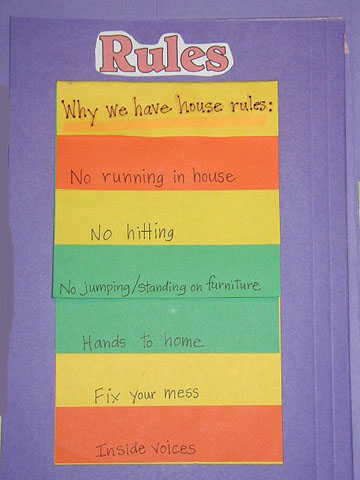 Rules
Why we have house rules:
No running in house
No hitting
No jumping/standing on furniture
Hands to home
Fix your mess
Inside voices